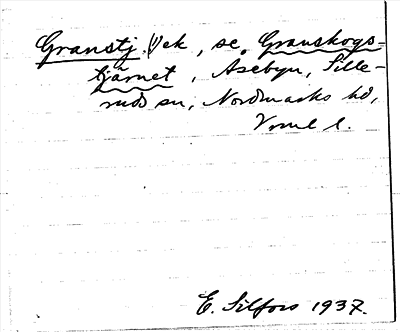 Granstj. Vek, se Granskogs-
tjärnet, Åsebyn, Sille-
ruds sn, Nordmarks hd,
Vrml l.
E. Silfors 1937.